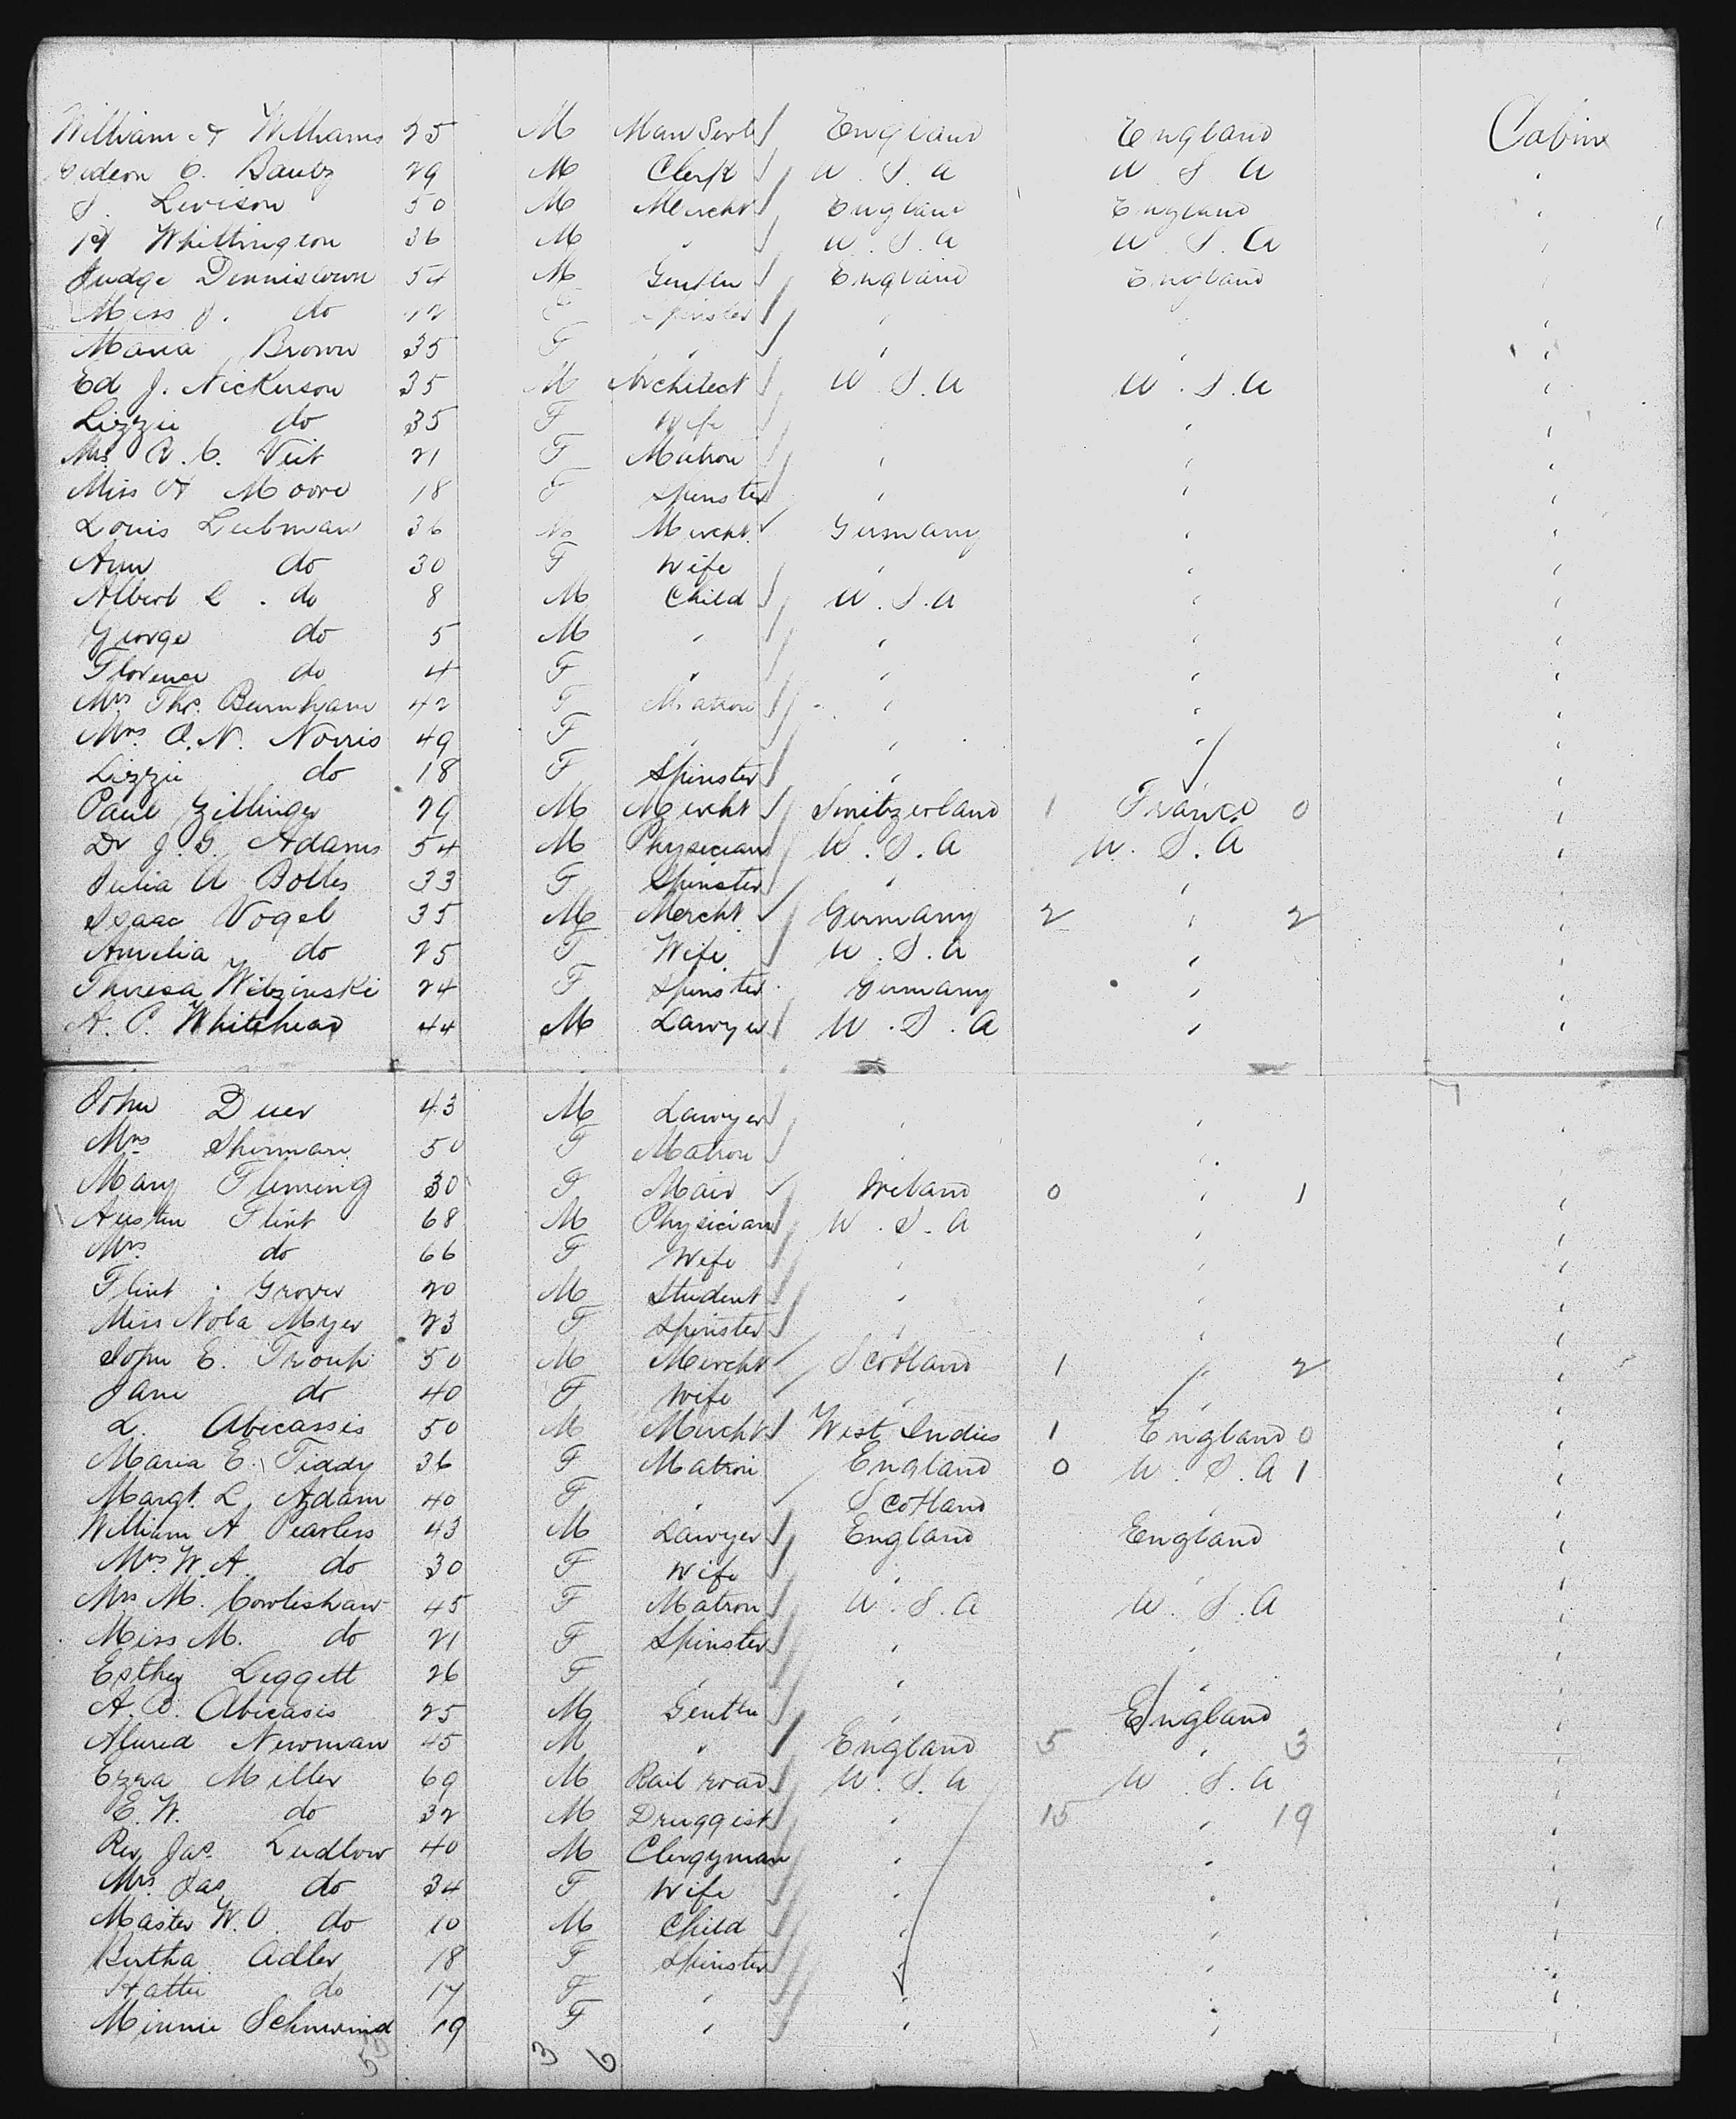 William A Williams 25 M Man Servt England England Cabin
Gideon C. Bantz 29 M Clerk U.S.A U S A
J. Levison 50 M Mercht England England
H Whittington 36 M " U.S.A U.S.A
Judge Dennistown 54 M Gentln England England
Miss J. do 12 Spinster " "
Maria Brown 35 F " " "
Ed J. Nickerson 35 M Architect U.S.A U.S.A
Lizzie do 35 F Wife " "
Mrs. A.C. Veit 21 F Matron " "
Miss A Moore 18 F Spinster " "
Louis Leibman 36 M Mercht. Germany "
Ann do 30 F Wife " "
Albert L. do 8 M Child U.S.A "
George do 5 M " " "
Florence do 4 F " " "
Mrs Thos. Burnham 42 F Matron " "
Mrs. O.N. Norris 49 F " " "
Lizzie do 18 F Spinster " "
Paul Zillinger 29 M Mercht Switzerland 1 France 0
Dr J.G. Adams 54 M Physician U.S.A U.S.A
Julia A Bolles 33 F Spinster " "
Isaac Vogel 35 M Mercht. Germany 2 " 2
Amelia do 25 F Wife U.S.A "
Theresa Witzinski 24 F Spinster Germany "
A.P. Whitehead 44 M Lawyer U.S.A "
John Duer 43 M Lawyer " "
Mrs Sherman 50 F Matron " "
Mary Fleming 30 F Maid Ireland 0 " 1
Austin Flint 68 M Physician U.S.A "
Mrs do 66 F Wife " "
Flint Grover 20 M Student " "
Miss Nola Myer 23 F Spinster " "
John E. Troup 50 M Mercht Scotland 1 " 2
Jane do 40 F Wife " "
L. Abecassis 50 M Mercht West Indies 1 England 0
Maria E. Tiddy 36 F Matron England 0 U.S.A 1
Margt. L. Adam 40 F " Scotland "
William A Pearless 43 M Lawyer England England
Mrs. W.A. do 30 F Wife " "
Mrs M. Cowlishaw 45 F Matron U.S.A U.S.A
Miss M. do 21 F Spinster " "
Esther Leggett 26 F " " "
A.D. Abecasis 25 M Gentln " England
Alured Newman 45 M " England 5 " 3
Ezra Miller 69 M Rail road U.S.A U.S.A
E.W. do 32 M Druggist " 15 " 19
Rev Jas. Ludlow 40 M Clergyman " "
Mrs. Jas do 34 F Wife " "
Master W.O. do 10 M Child " "
Bertha Adler 18 F Spinster " "
Hattie do 17 F " " "
Minnie Schwind 19 F " " "
53 3 6